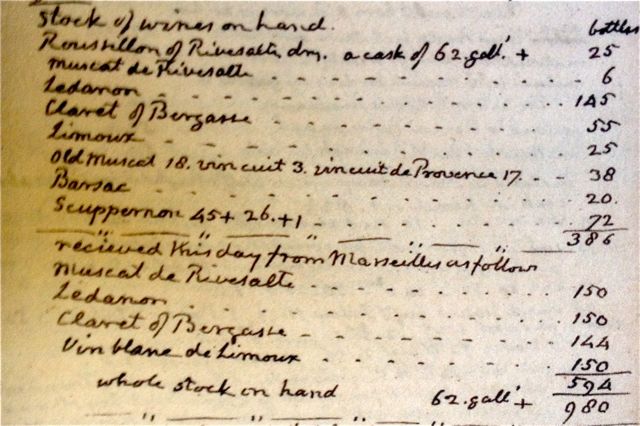 Stock of wines on hand. bottles
Roussillon of Rivesalte, dry. a cask of 62 gall.s + 25
Muscat de Rivesalte - - - - 6
Ledanon - - - - 145
Claret of Bergasse - - - - 55
Limoux - - - - 25
old Muscat 18. vin cuit 3. vin cuit de Provence 17. - - 38
Barsac - - - - 20.
Scuppernon 45 + 26. + 1 - - - - 72
386
recieved this day from Marseilles as follows
Muscat de Rivesalte - - - - 150
Ledanon - - - - 150
Claret of Bergasse - - - - 144
Vin blanc de Limoux - - - - 150
594
whole stock on hand 62. gall.s + 980